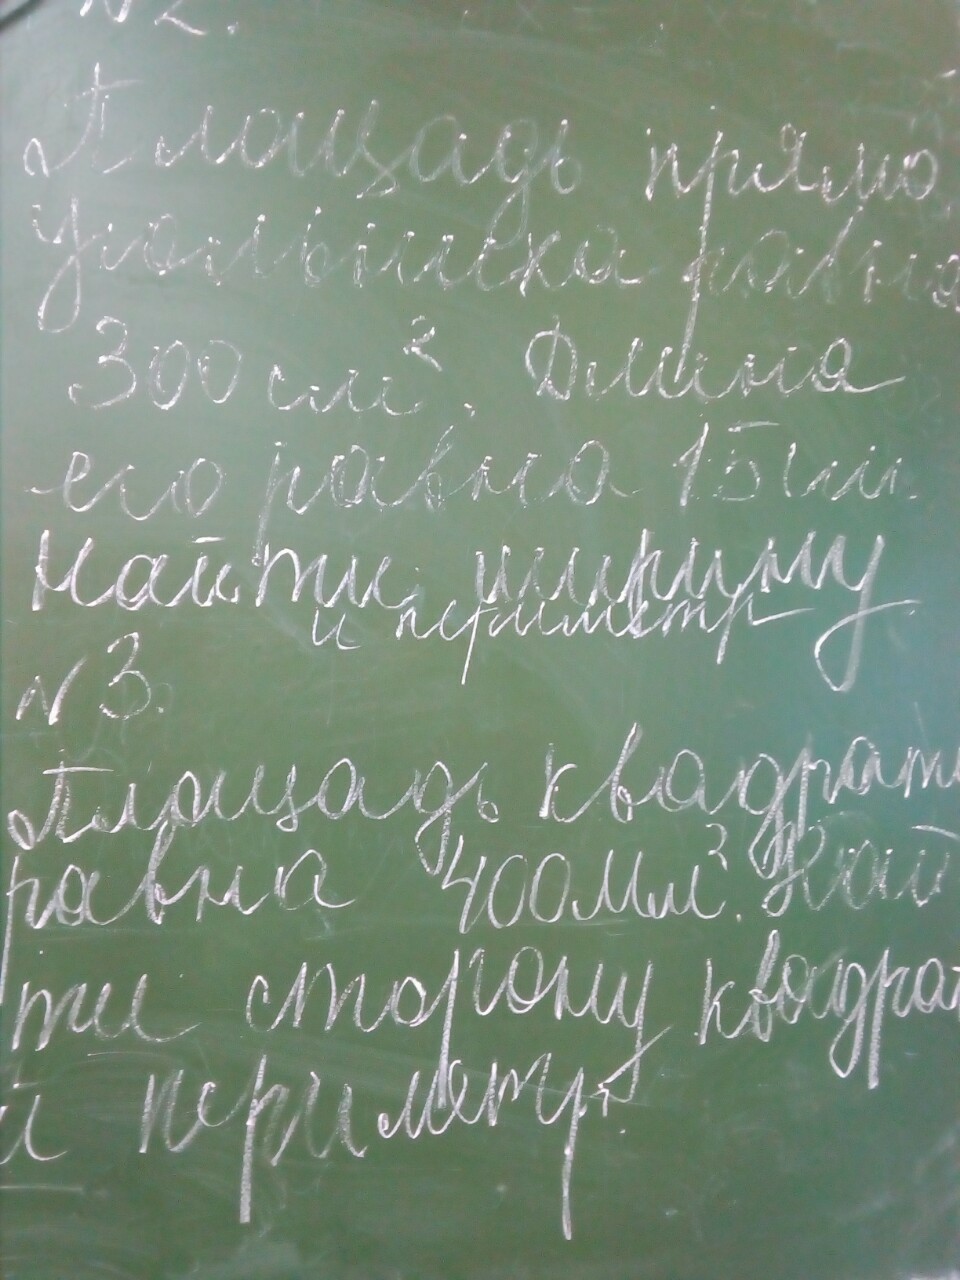 №2.
Площадь прямо
угольника равна
300 см². Длина
его равна 15 см.
Найти ширину
и периметр
№3.
Площадь квадрата
равна 400 мм². Най
ти сторону квадрат
и периметр.